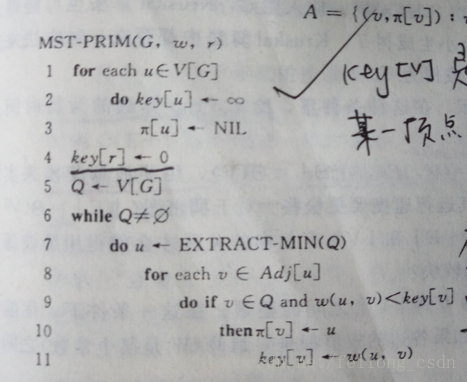 A = {(v, π[v]) :
MST-PRIM(G, w, r)
1 for each u∈V[G]
2 do key[u] ← ∞
3 π[u] ← NIL
4 key[r] ← 0
5 Q ← V[G]
6 while Q≠∅
7 do u ← EXTRACT-MIN(Q)
8 for each v ∈ Adj[u]
9 do if v ∈ Q and w(u, v)<key[v]
10 then π[v] ← u
11 key[v] ← w(u, v)
key[v]
某一顶点